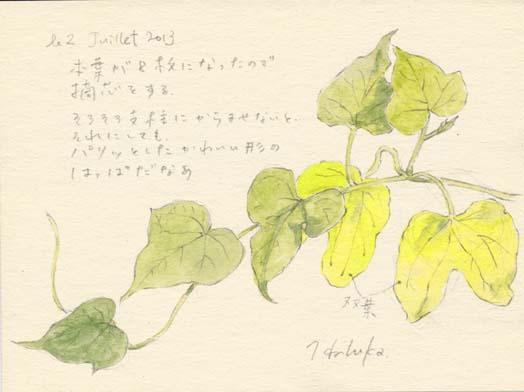 le 2 Juillet 2013
本葉が8枚になったので
摘芯をする.
そろそろ支柱にからませないと.
それにしても.
パリッとしたかわいい形の
はっぱだなあ
双葉